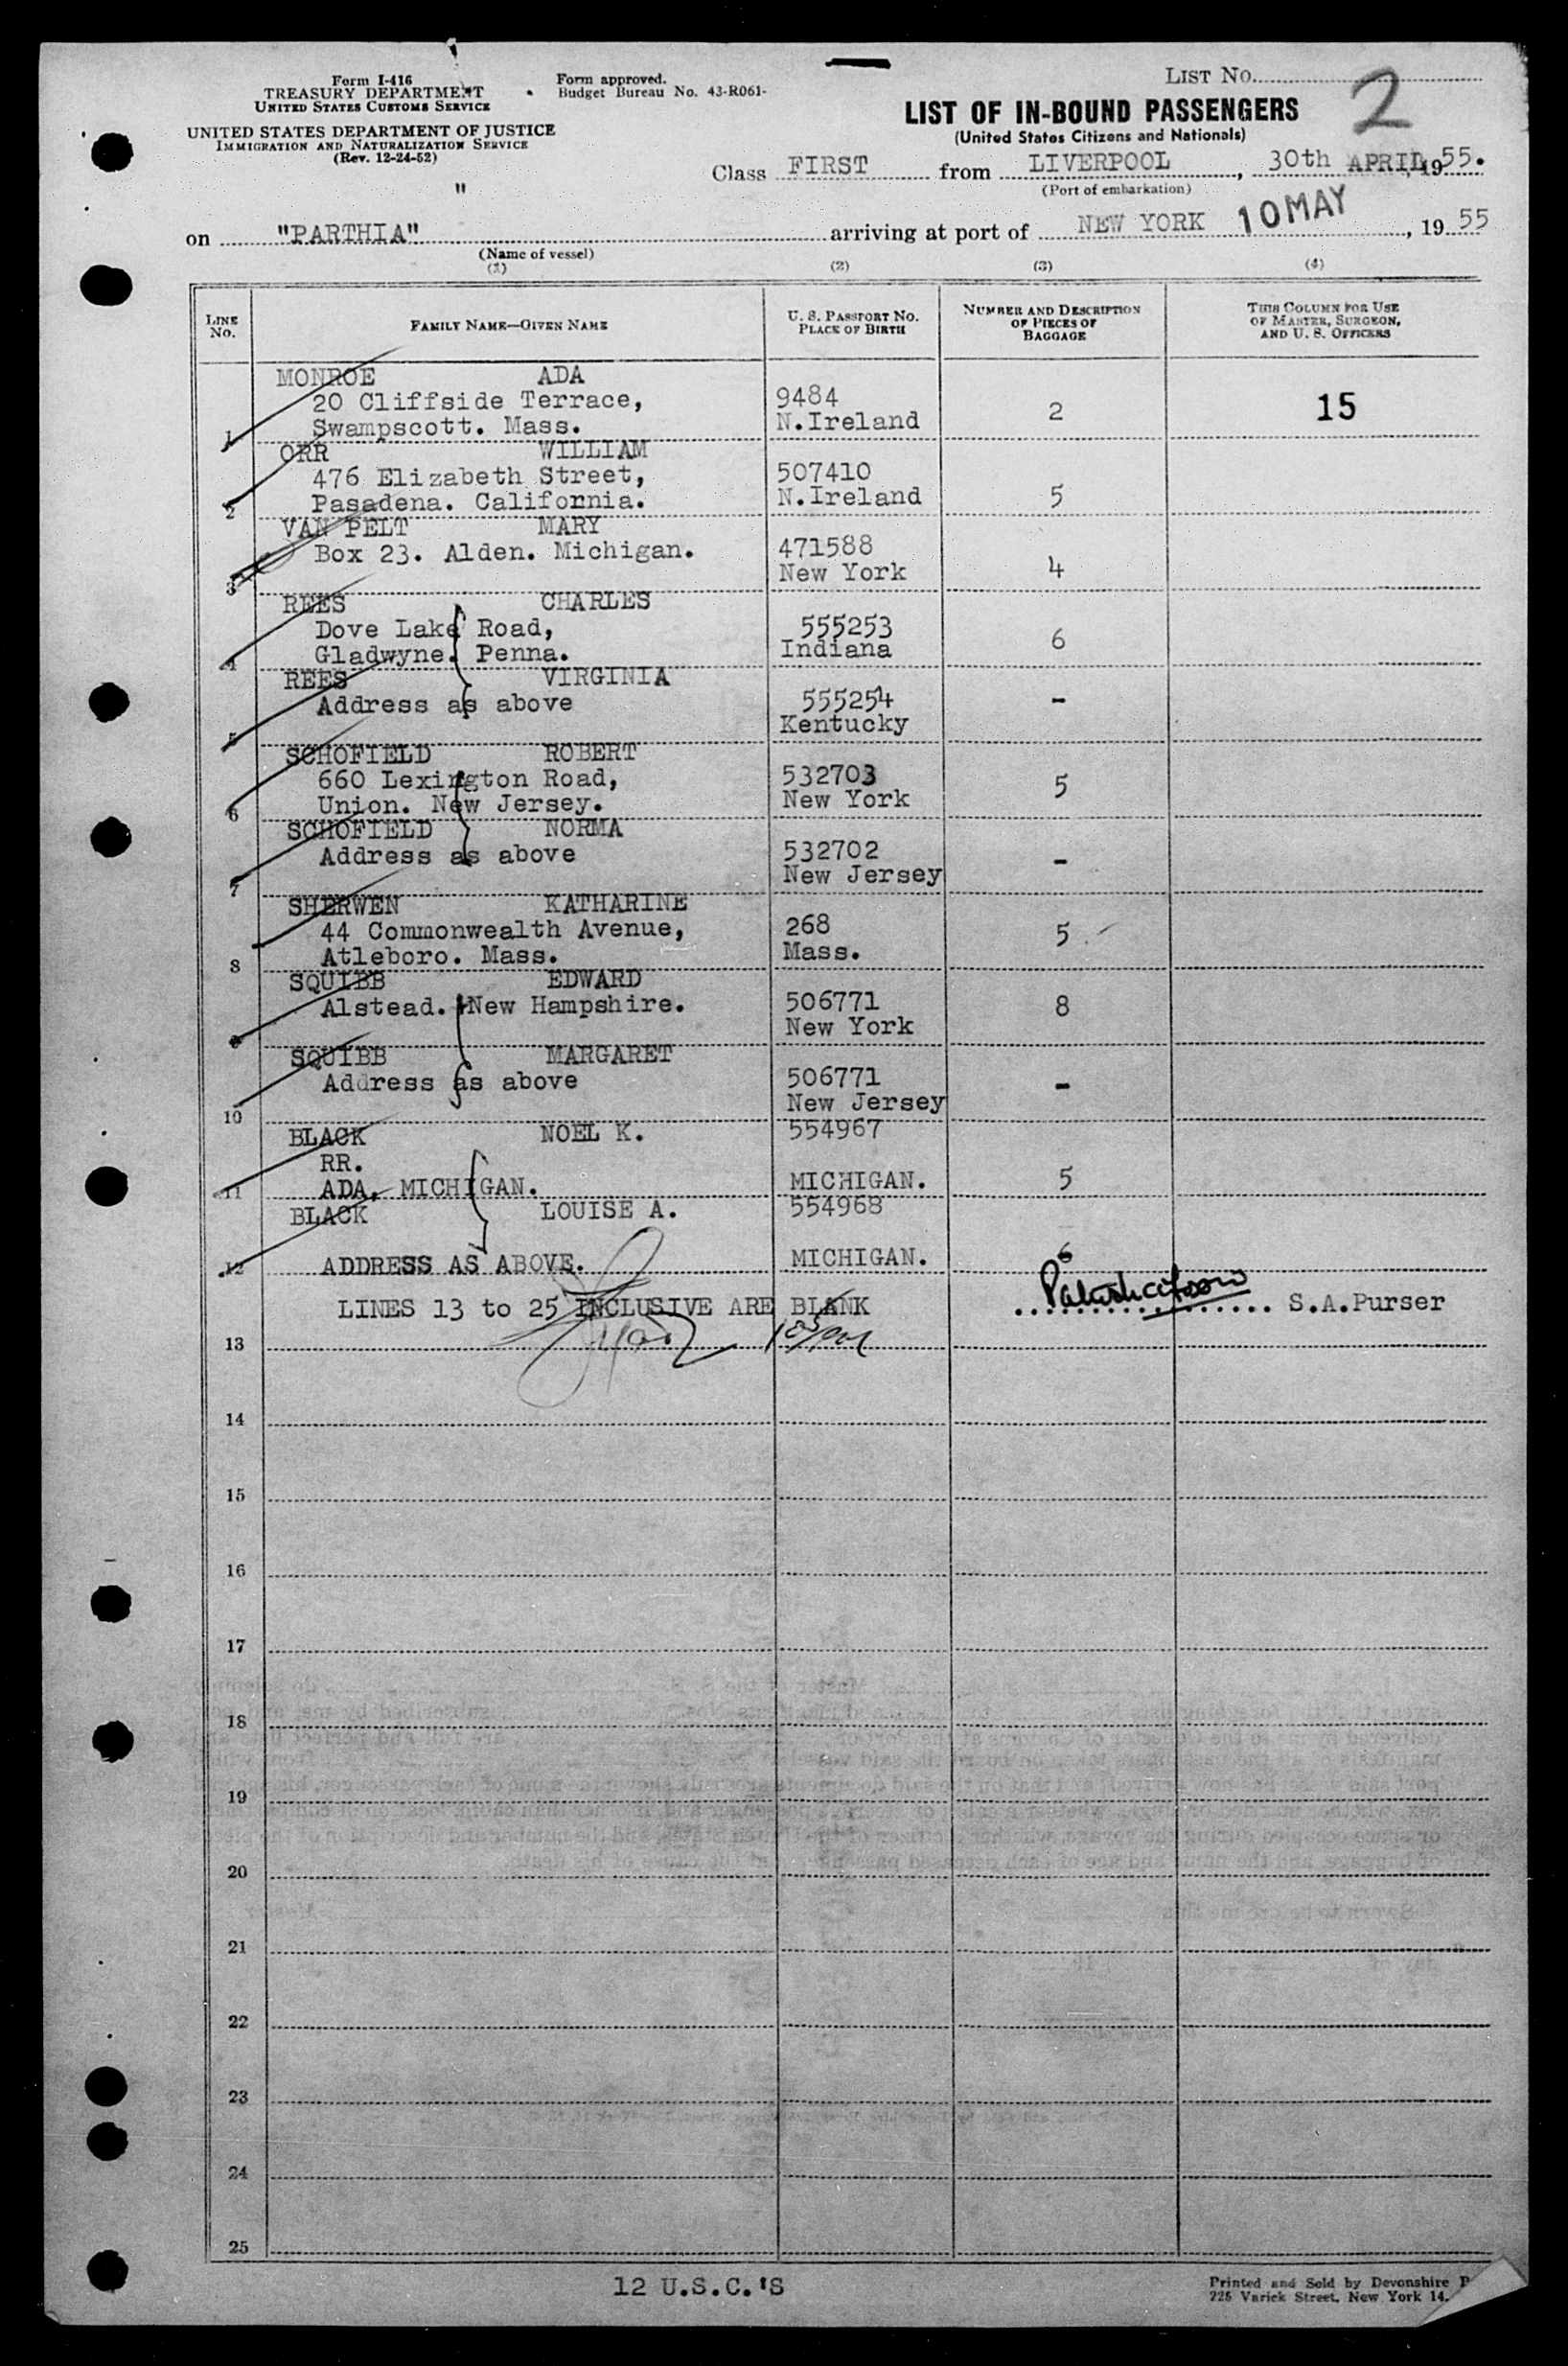 Form I-416
TREASURY DEPARTMENT
UNITED STATES CUSTOMS SERVICE
UNITED STATES DEPARTMENT OF JUSTICE
IMMIGRATION AND NATURALIZATION SERVICE
(Rev. 12-24-52)
Form approved.
Budget Bureau No. 43-R061-
LIST NO.
2
LIST OF IN-BOUND PASSENGERS
(United States Citizens and Nationals)
Class FIRST from LIVERPOOL, 30th APRIL, 1955.
(Port of embarkation)
"
on "PARTHIA" arriving at port of NEW YORK 10 MAY, 1955
(Name of vessel)
(1) (2) (3) (4)
LINE NO.
FAMILY NAME—GIVEN NAME
U. S. PASSPORT NO.
PLACE OF BIRTH
NUMBER AND DESCRIPTION
OF PIECES OF
BAGGAGE
THIS COLUMN FOR USE
OF MASTER, SURGEON,
AND U. S. OFFICERS
MONROE ADA
20 Cliffside Terrace, 9484 2 15
1 Swampscott. Mass. N.Ireland
ORR WILLIAM
476 Elizabeth Street, 507410
2 Pasadena. California. N.Ireland 5
VAN PELT MARY
Box 23. Alden. Michigan. 471588
3 New York 4
REES CHARLES
Dove Lake Road, 555253 6
4 Gladwyne. Penna. Indiana
REES VIRGINIA
Address as above 555254 -
5 Kentucky
SCHOFIELD ROBERT
660 Lexington Road, 532703 5
6 Union. New Jersey. New York
SCHOFIELD NORMA
Address as above 532702 -
7 New Jersey
SHERWEN KATHARINE
44 Commonwealth Avenue, 268 5
8 Atleboro. Mass. Mass.
SQUIBB EDWARD
Alstead. New Hampshire. 506771 8
9 New York
SQUIBB MARGARET
Address as above 506771 -
10 New Jersey
BLACK NOEL K. 554967
RR.
11 ADA, MICHIGAN. MICHIGAN. 5
BLACK LOUISE A. 554968
12 ADDRESS AS ABOVE. MICHIGAN. 6
LINES 13 to 25 INCLUSIVE ARE BLANK S.A.Purser
13
14
15
16
17
18
19
20
21
22
23
24
25
12 U.S.C.'S
Printed and Sold by Devonshire
225 Varick Street, New York 14.